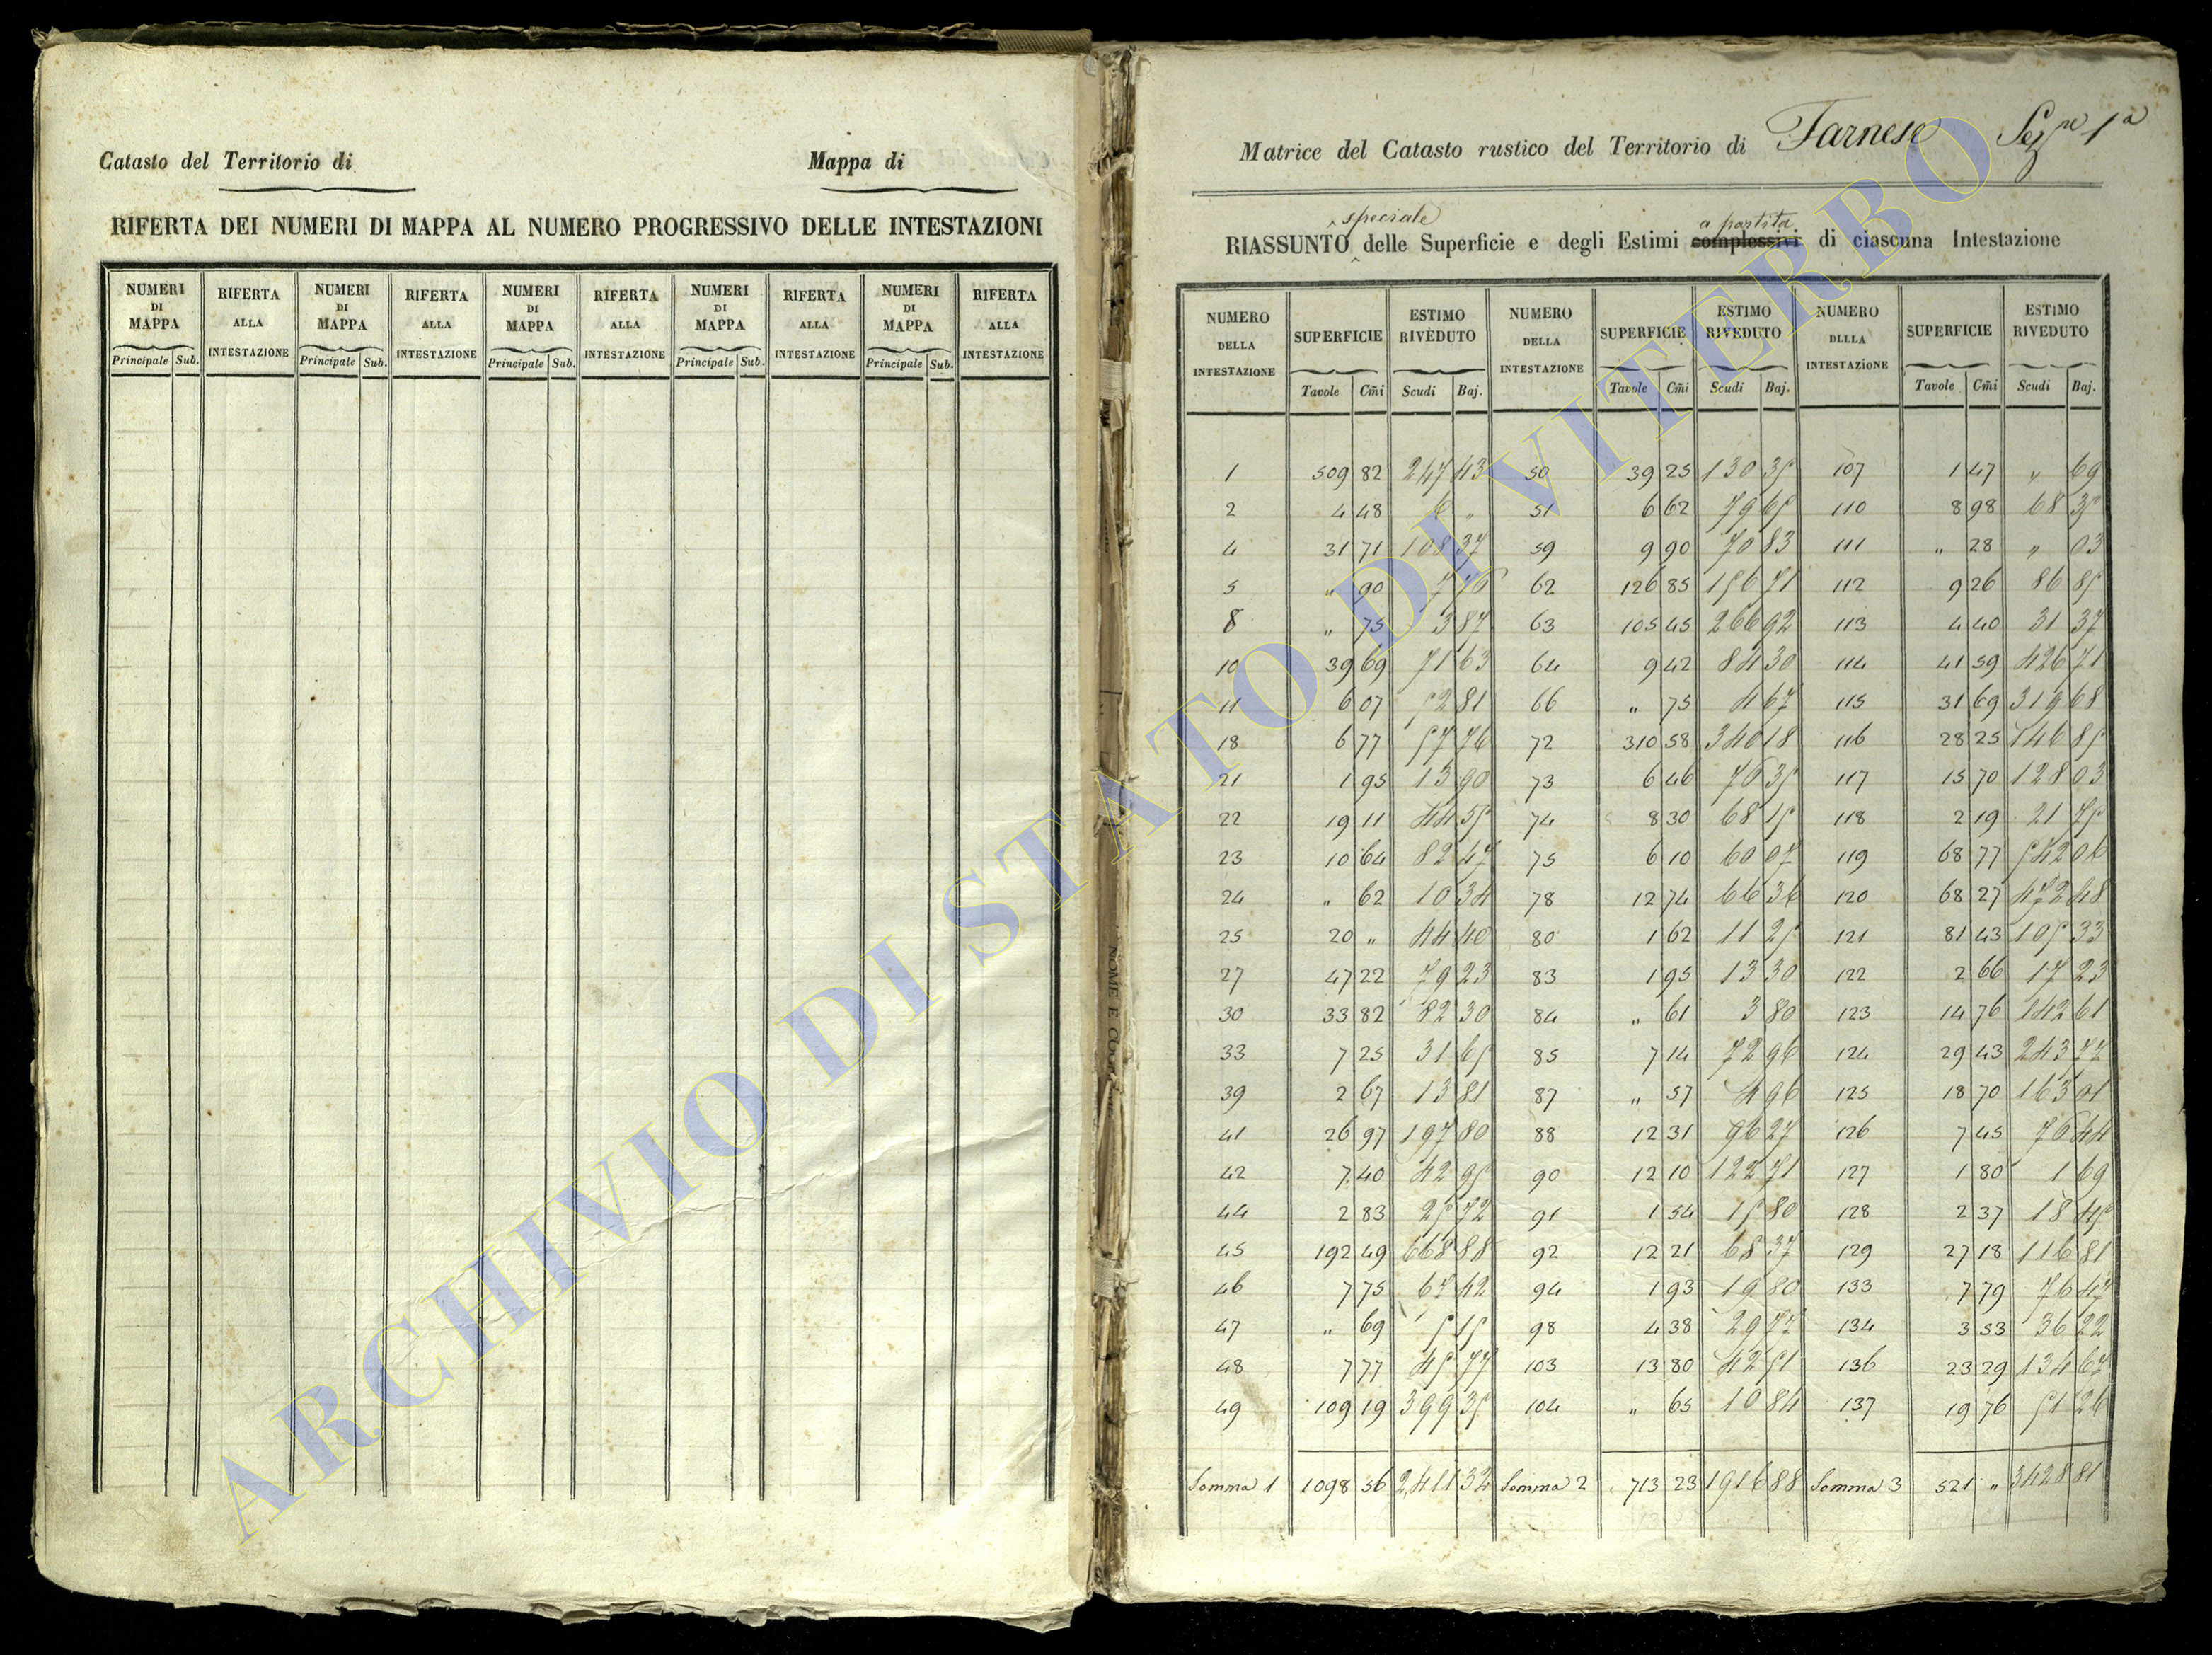 Catasto del Territorio di
Mappa di
RIFERTA DEI NUMERI DI MAPPA AL NUMERO PROGRESSIVO DELLE INTESTAZIONI
NUMERI DI MAPPA RIFERTA ALLA INTESTAZIONE NUMERI DI MAPPA RIFERTA ALLA INTESTAZIONE NUMERI DI MAPPA RIFERTA ALLA INTESTAZIONE NUMERI DI MAPPA RIFERTA ALLA INTESTAZIONE NUMERI DI MAPPA RIFERTA ALLA INTESTAZIONE
Principale Sub. Principale Sub. Principale Sub. Principale Sub. Principale Sub.
Matrice del Catasto rustico del Territorio di Farnese Sezne 1a
speciale a partita
RIASSUNTO delle Superficie e degli Estimi complessivi di ciascuna Intestazione
NUMERO DELLA INTESTAZIONE SUPERFICIE ESTIMO RIVEDUTO NUMERO DELLA INTESTAZIONE SUPERFICIE ESTIMO RIVEDUTO NUMERO DELLA INTESTAZIONE SUPERFICIE ESTIMO RIVEDUTO
Tavole Cm̄i Scudi Baj. Tavole Cm̄i Scudi Baj. Tavole Cm̄i Scudi Baj.
1 509 82 247 43 50 39 25 130 35 107 1 47 " 69
2 4 48 6 " 51 6 62 79 65 110 8 98 68 35
4 31 71 108 37 59 9 90 70 83 111 " 28 " 03
5 " 90 7 76 62 126 85 156 71 112 9 26 86 85
8 " 75 3 87 63 105 45 266 92 113 4 40 31 37
10 39 69 71 63 64 9 42 84 30 114 41 59 426 71
11 6 07 52 81 66 " 75 4 67 115 31 69 319 68
18 6 77 57 76 72 310 58 340 18 116 28 25 146 85
21 1 95 13 90 73 6 46 76 35 117 15 70 128 03
22 19 11 44 55 74 8 30 68 15 118 2 19 21 75
23 10 64 82 47 75 6 10 60 07 119 68 77 542 06
24 " 62 10 34 78 12 74 66 36 120 68 27 472 48
25 20 " 44 40 80 1 62 11 25 121 81 43 105 33
27 47 22 79 23 83 1 95 13 30 122 2 66 17 23
30 33 82 82 30 84 " 61 3 80 123 14 76 142 61
33 7 25 31 65 85 7 14 72 96 124 29 43 243 77
39 2 67 13 81 87 " 57 4 96 125 18 70 163 01
41 26 97 197 80 88 12 31 96 27 126 7 45 76 44
42 7 40 42 95 90 12 10 122 71 127 1 80 1 69
44 2 83 25 72 91 1 54 15 80 128 2 37 18 45
45 192 49 668 88 92 12 21 68 37 129 27 18 116 81
46 7 75 67 42 94 1 93 19 80 133 7 79 76 47
47 " 69 5 15 98 4 38 29 77 134 3 53 36 22
48 7 77 45 77 103 13 80 42 51 136 23 29 134 67
49 109 19 399 35 104 " 65 10 84 137 19 76 51 26
Somma 1 1098 56 2,411 34 Somma 2 713 23 1916 88 Somma 3 521 " 3428 81
NOME E
ARCHIVIO DI STATO DI VITERBO